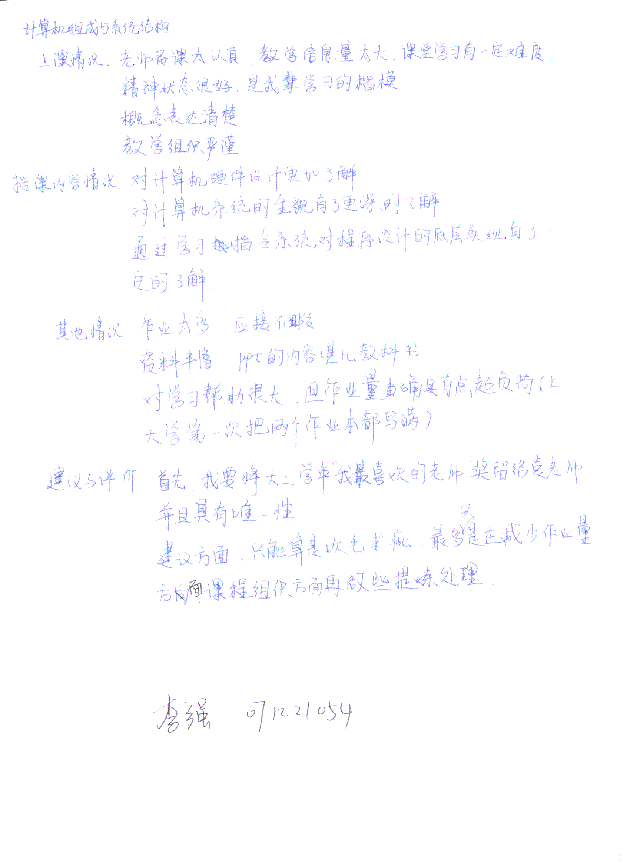 计算机组成与系统结构
上课情况. 老师备课太认真 教学信息量太大, 课堂学习有一定难度
精神状态很好, 是我辈学习的楷模
概念表达清楚
教学组织严谨
授课内容情况 对计算机硬件设计更加了解
对计算机系统的全貌有了更深的了解
通过学习指令系统, 对程序设计的底层实现有了一
定的了解
其他情况 作业太多 应接不暇
资料丰富 PPT的内容堪比教科书
对学习帮助很大, 但作业量的确具有点超负荷(上
大学第一次把两个作业本都写满)
建议与评价 首先, 我要将大二学年我最喜欢的老师奖留给袁老师
并且具有唯一性
建议方面, 只能算是吹毛求疵, 最多是在减少作业量
方面课程组织方面再做些提炼处理.
李强 07122054